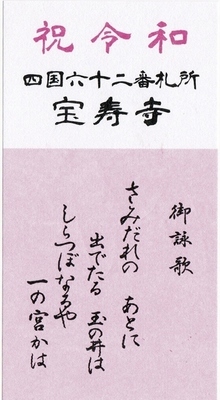 祝令和
四国六十二番札所
宝寿寺
御詠歌
さみだれの　あとに
出でたる　玉の井は
しらつぼなるや
一の宮かは